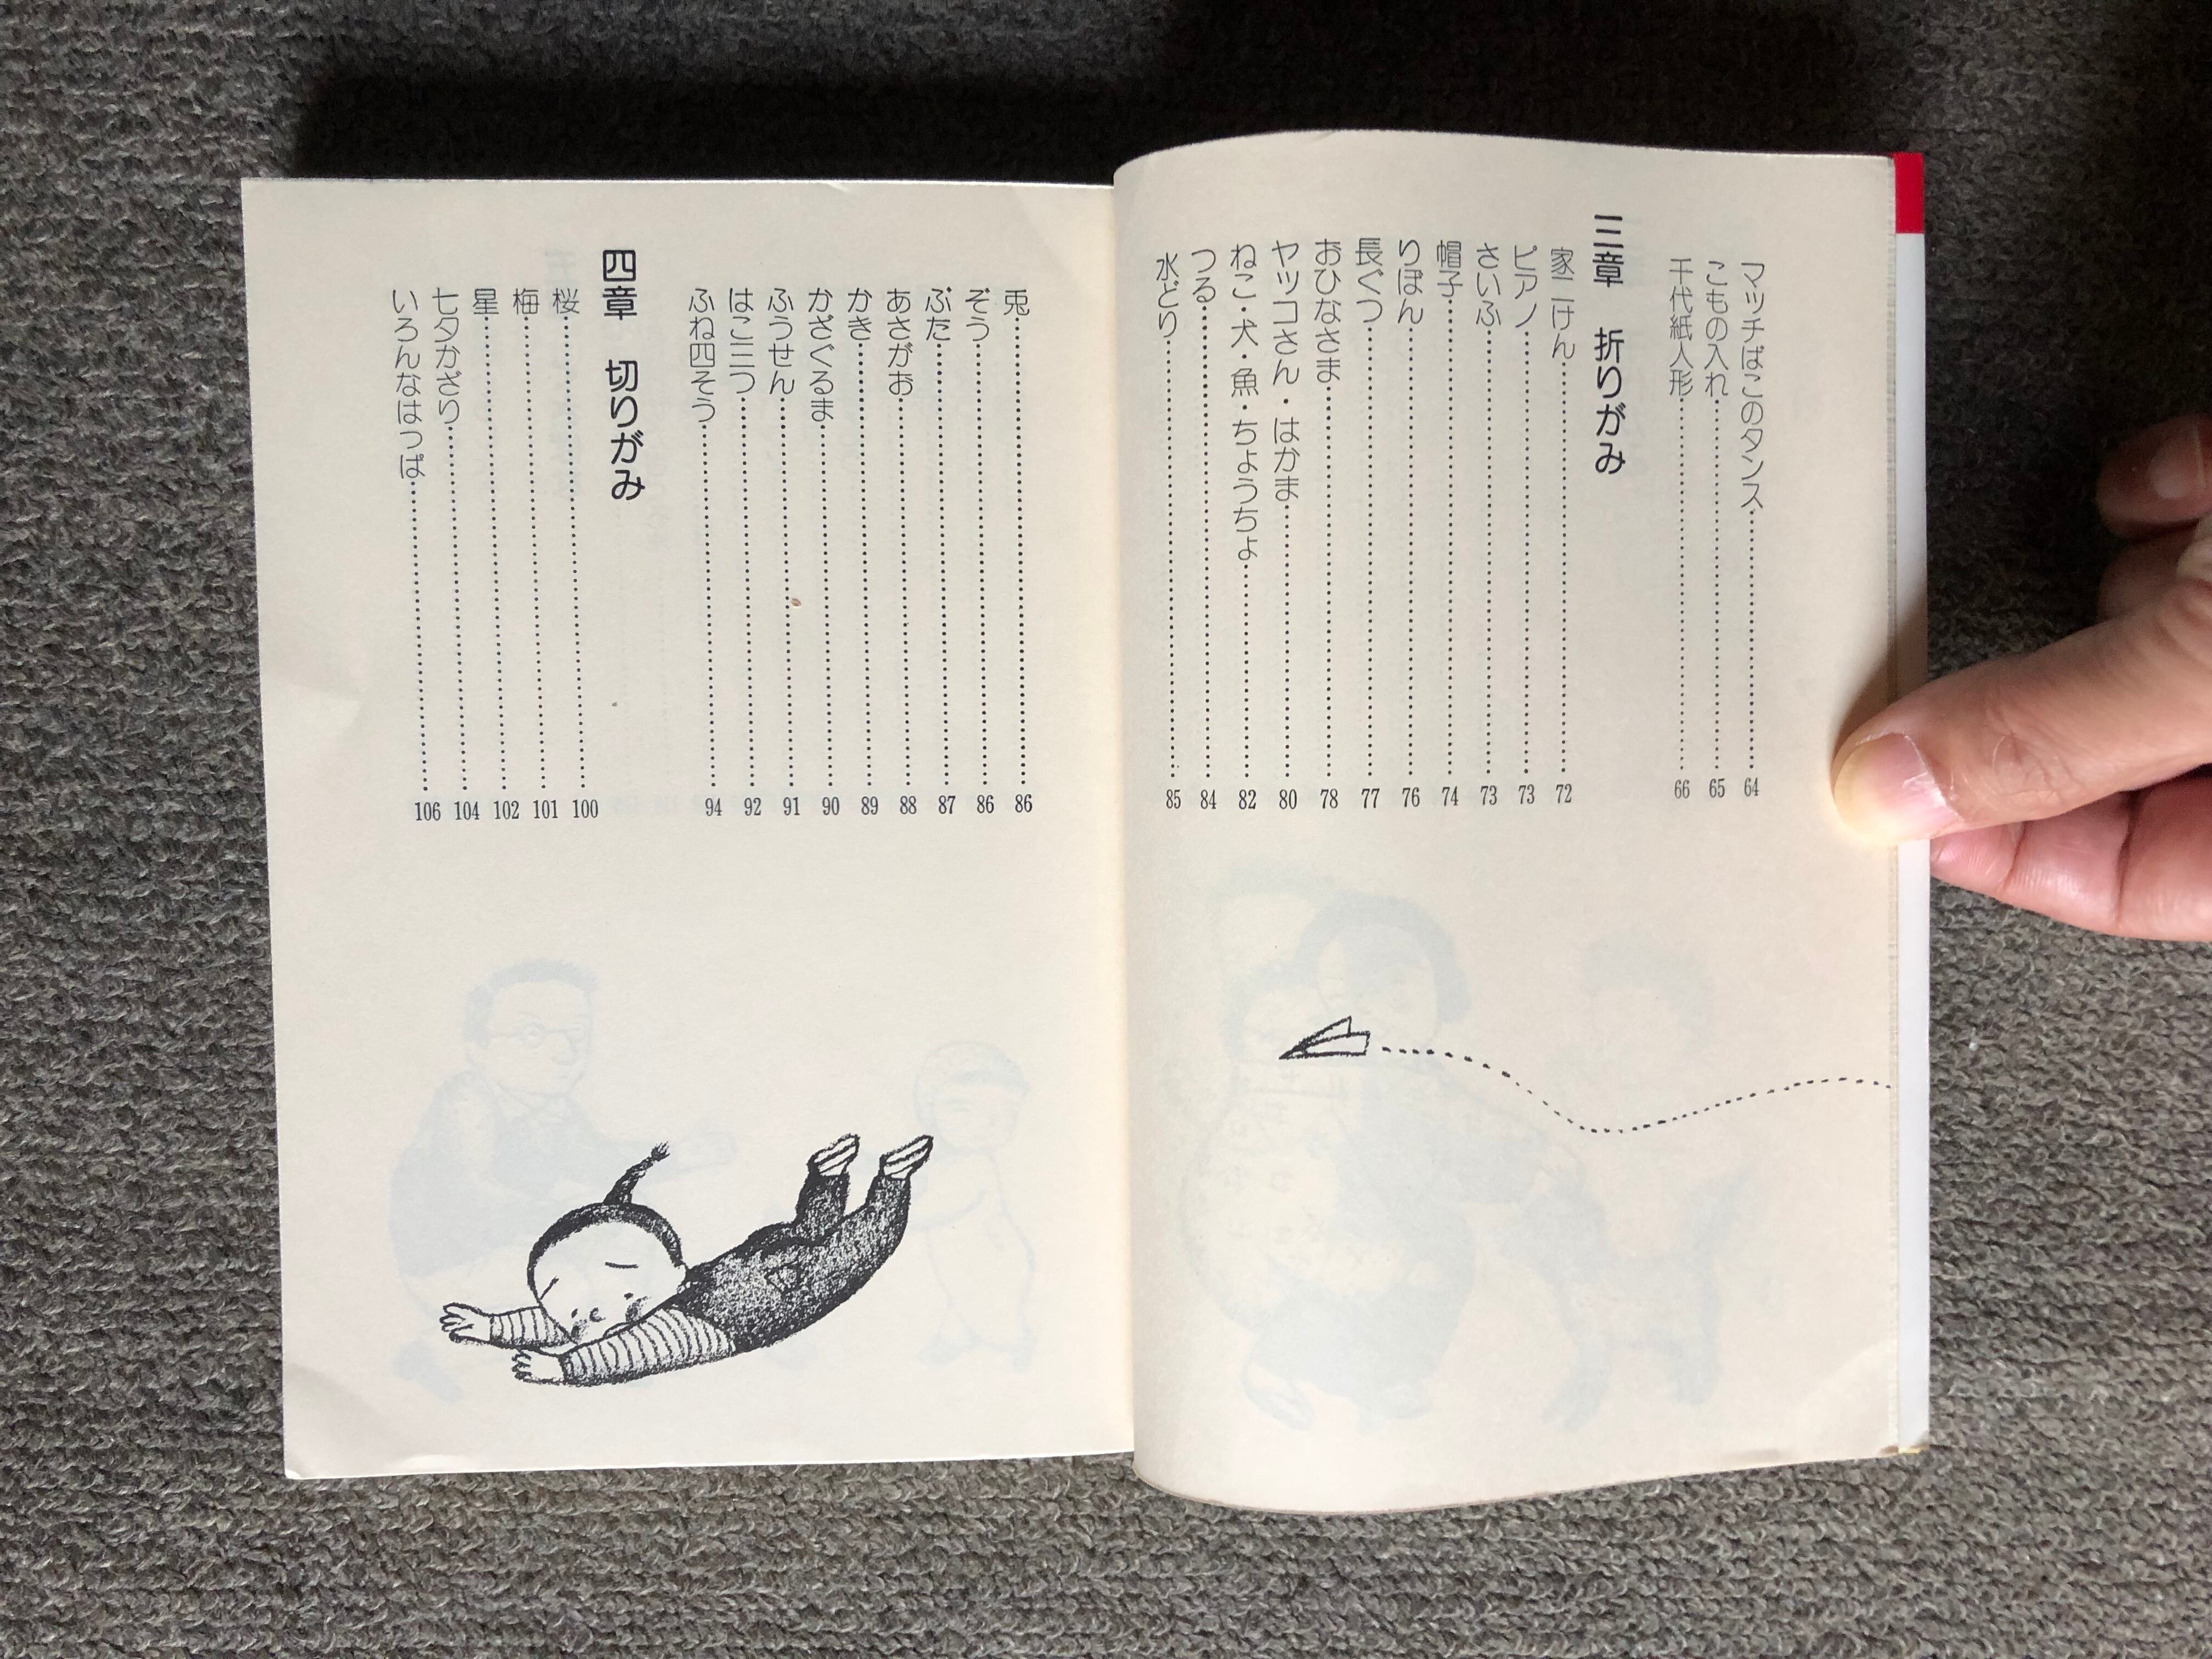 マッチばこのタンス……64
こもの入れ……65
千代紙人形……66
三章　折りがみ
家二けん……72
ピアノ……73
さいふ……73
帽子……74
りぼん……76
長ぐつ……77
おひなさま……78
ヤッコさん・はかま……80
ねこ・犬・魚・ちょうちょ……82
つる……84
水どり……85
兎……86
ぞう……86
ぶた……87
あさがお……88
かき……89
かざぐるま……90
ふうせん……91
はこ三つ……92
ふね四そう……94
四章　切りがみ
桜……100
梅……101
星……102
七夕かざり……104
いろんなはっぱ……106